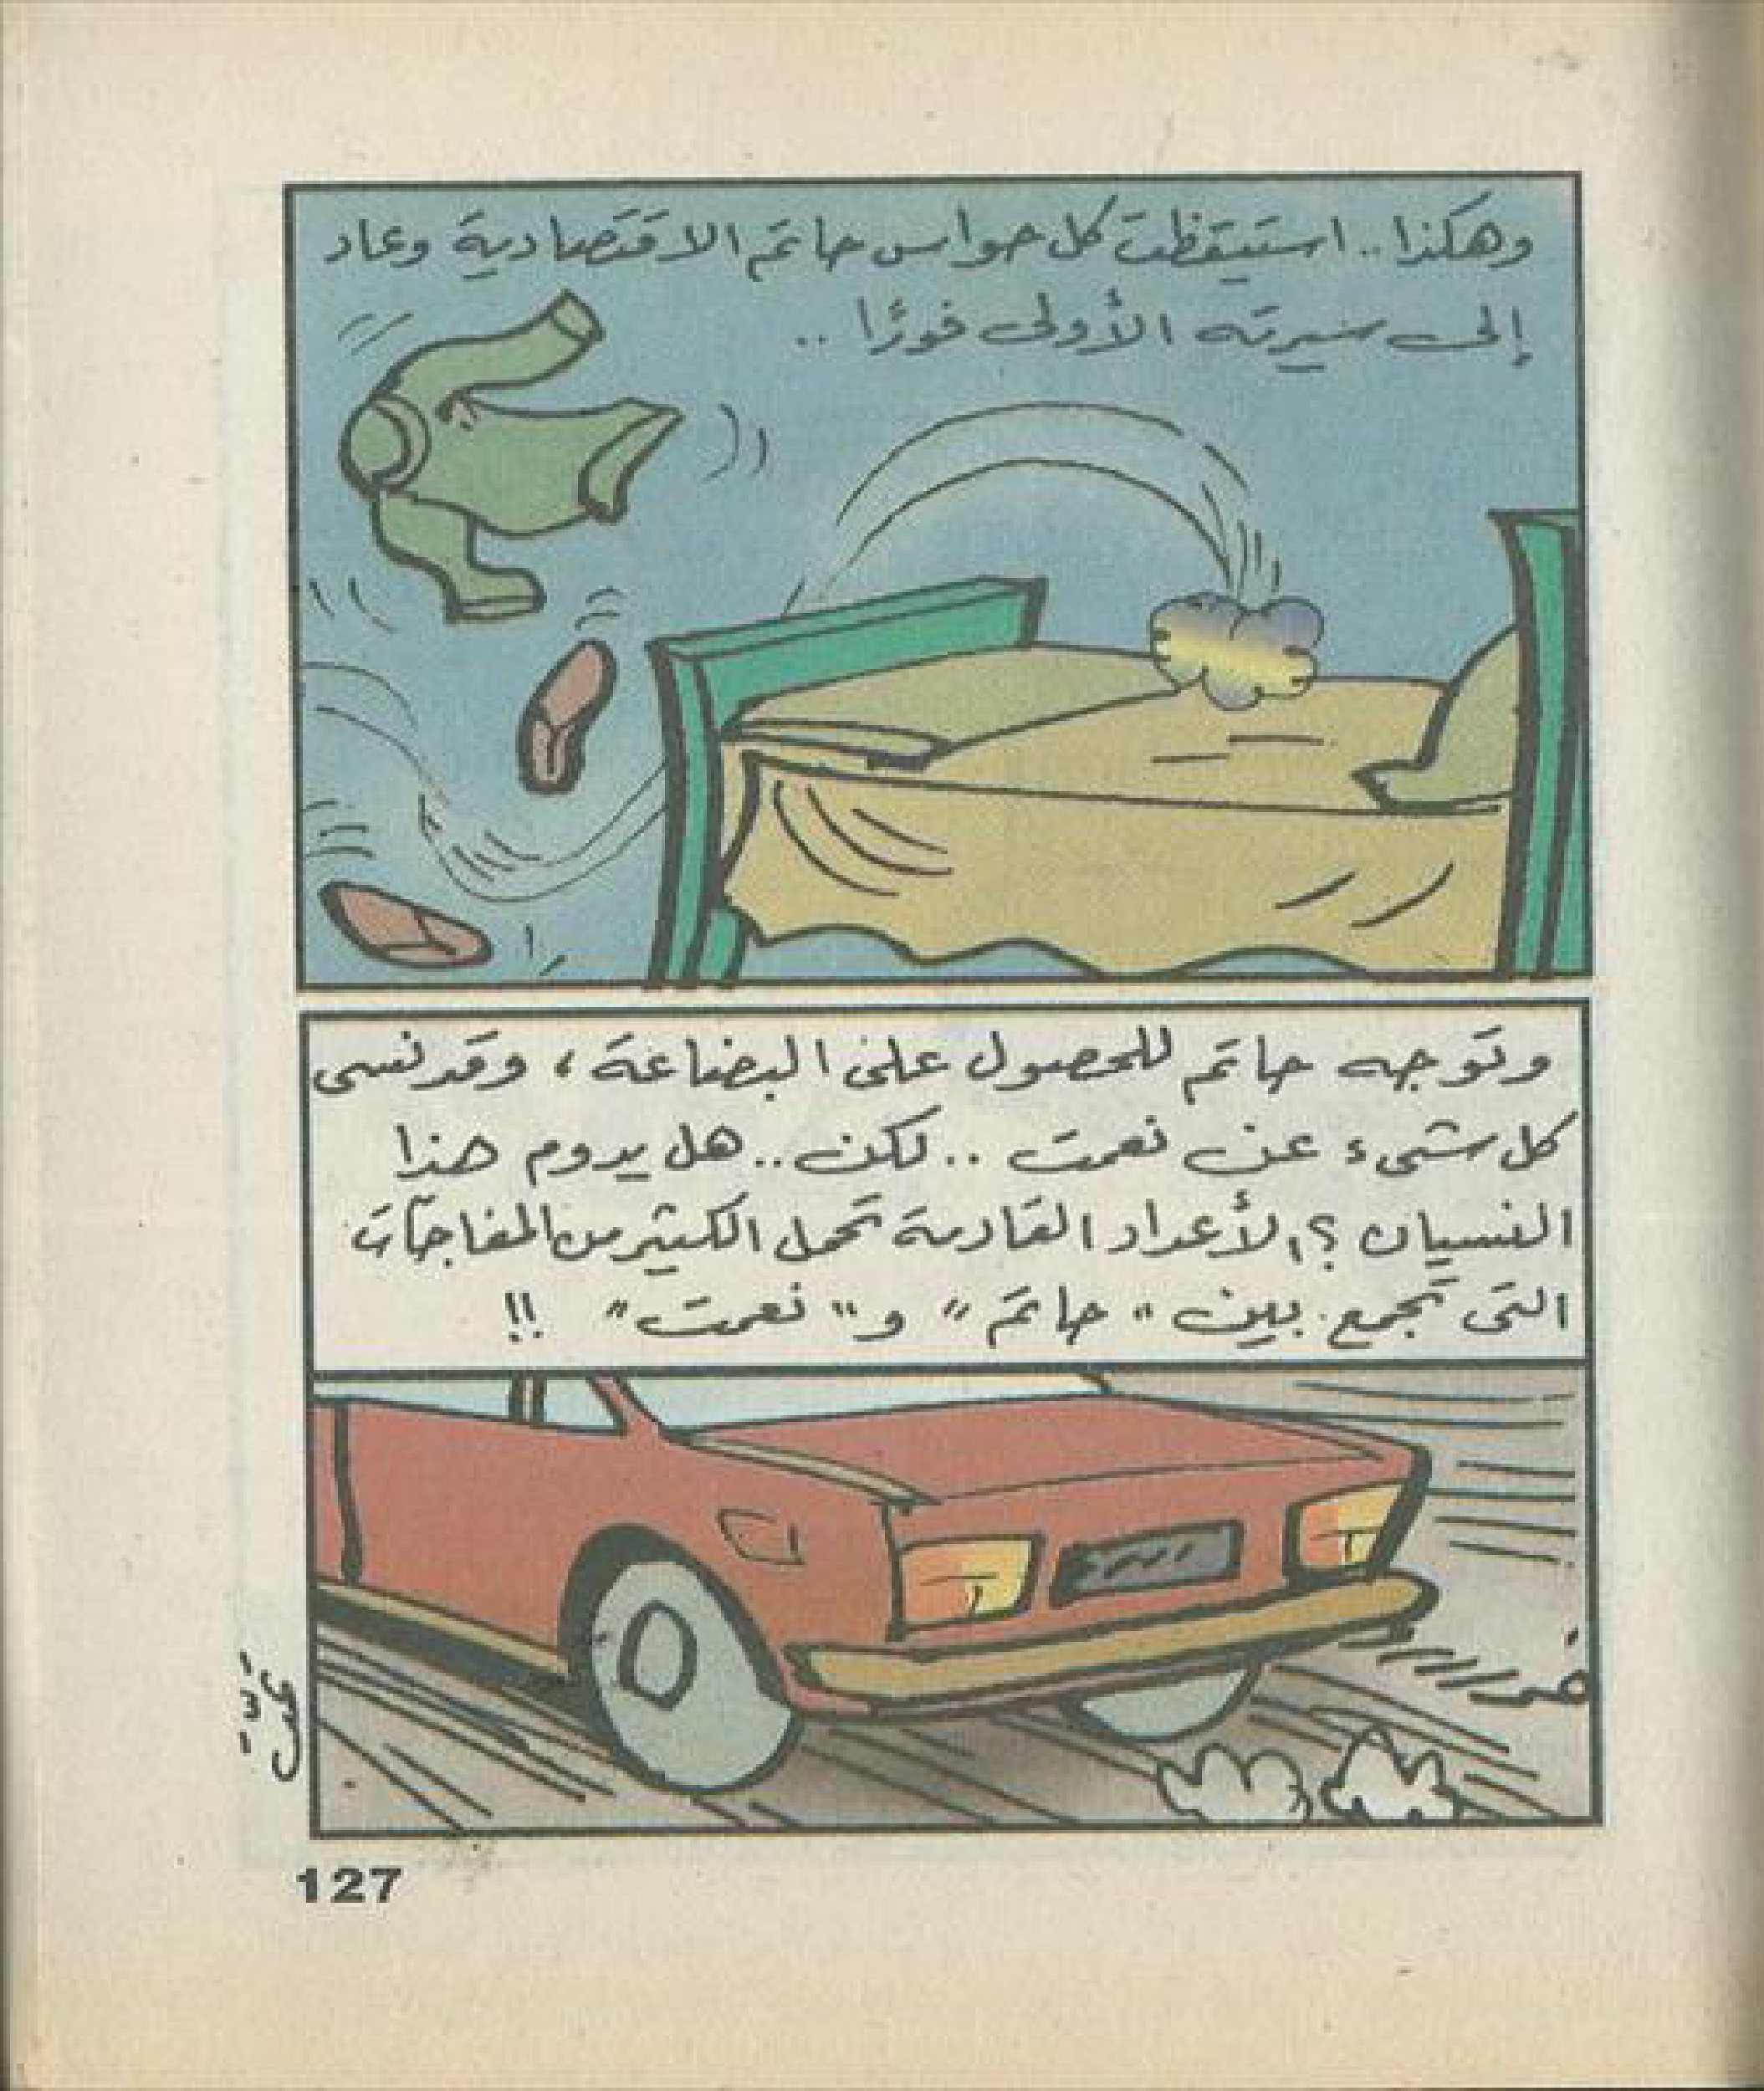 وهكذا.. استيقظت كل حواس حاتم الاقتصادية وعاد
إلى سيرته الأولى فورًا ..
وتوجه حاتم للحصول على البضاعة، وقد نسى
كل شىء عن نعمت .. لكن.. هل يدوم هذا
النسيان ؟! الأعداد القادمة تحمل الكثير من المفاجآت
التى تجمع بين "حاتم" و"نعمت" !!
127